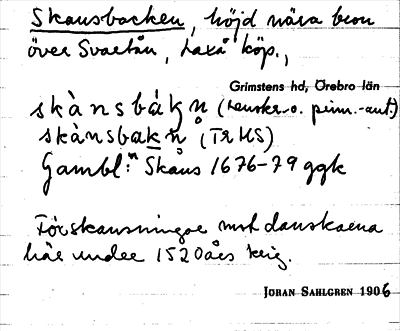 Skansbacken, höjd nära bron
över Svartån, Laxå köp.,
Grimstens hd, Örebro län
skànsbákn̥ (
skànsbakn̥ (TRHS)
Gambl:n Skans 1676-79 ggk
Förskansningar mot danskarna
här under 1520års krig.
JOHAN SAHLGREN 1906